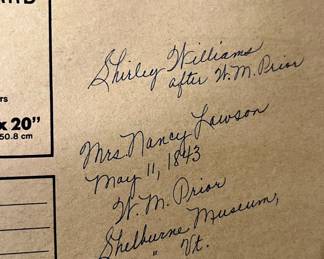 Shirley Williams
after W. M. Prior
x 20"
50.8 cm
Mrs. Nancy Lawson
May 11, 1843
W. M. Prior
Shelburne Museum,
" Vt.